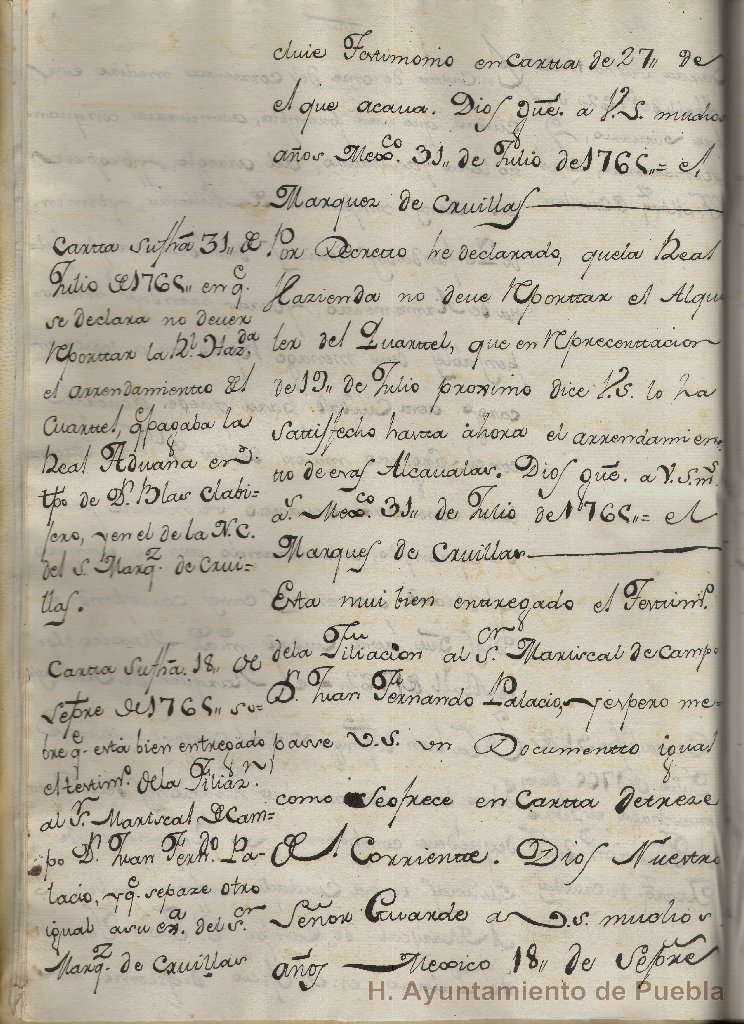 cluie Testimonio en Carta de 27,, de
el que acava. Dios gue. a V.S. muchos
años Mexco. 31,, de Julio de 1765,,= el
Marquez de Cruillas
Carta su fha 31,, de
Julio de 1765,, en q.
se declara no dever
reporttar la Rl. Hazda.
el arrendamiento del
Cuartel, q. pagaba la
Real Aduana en
tpo de Dn. Blas Clabi-
jero, y en el de la N.C.
del S. Marqz. de Crui-
llas.
Por Decreto he declarado, que la Real
Hazienda no deve reporttar el Alqui
ler del Quarttel, que en reprecenttacion
de 19,, de Julio proximo dice V.S. lo ha
sattisfecho hasta ahora el arrendamien
tto de esas Alcavalas. Dios gue. a V.S. ms.
as. Mexco. 31,, de Julio de 1765,,= el
Marques de Cruillas
Carta su fha. 18,, de
Sepre de 1765,, so-
bre q. está bien entregado
el testimo. de la Filiazn.
al Sr. Mariscal de Cam-
po Dn. Juan Ferndo. Pa-
lacio, y q. se pase otro
igual a su exa. del Sr.
Marqz. de Cruillas
Esta mui bien entregado el Testimo.
de la Filiacion al Sr. Mariscal de Campo
Dn. Juan Fernando Palacio, y espero me=
passe V.S. un Documentto igual
como se ofrece en Carta de treze
del Corriente. Dios Nuestro
Señor Guarde a V.S. muchos
años — Mexico 18,, de Sepre
H. Ayuntamiento de Puebla